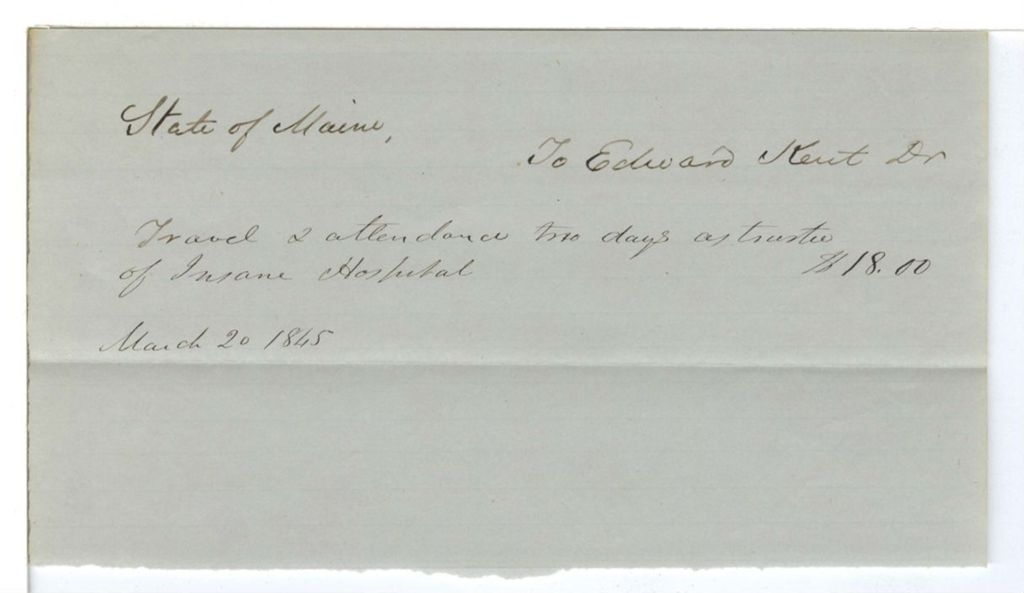 State of Maine,
To Edward Kent Dr
Travel & attendance two days as trustee
of Insane Hospital $18.00
March 20 1845